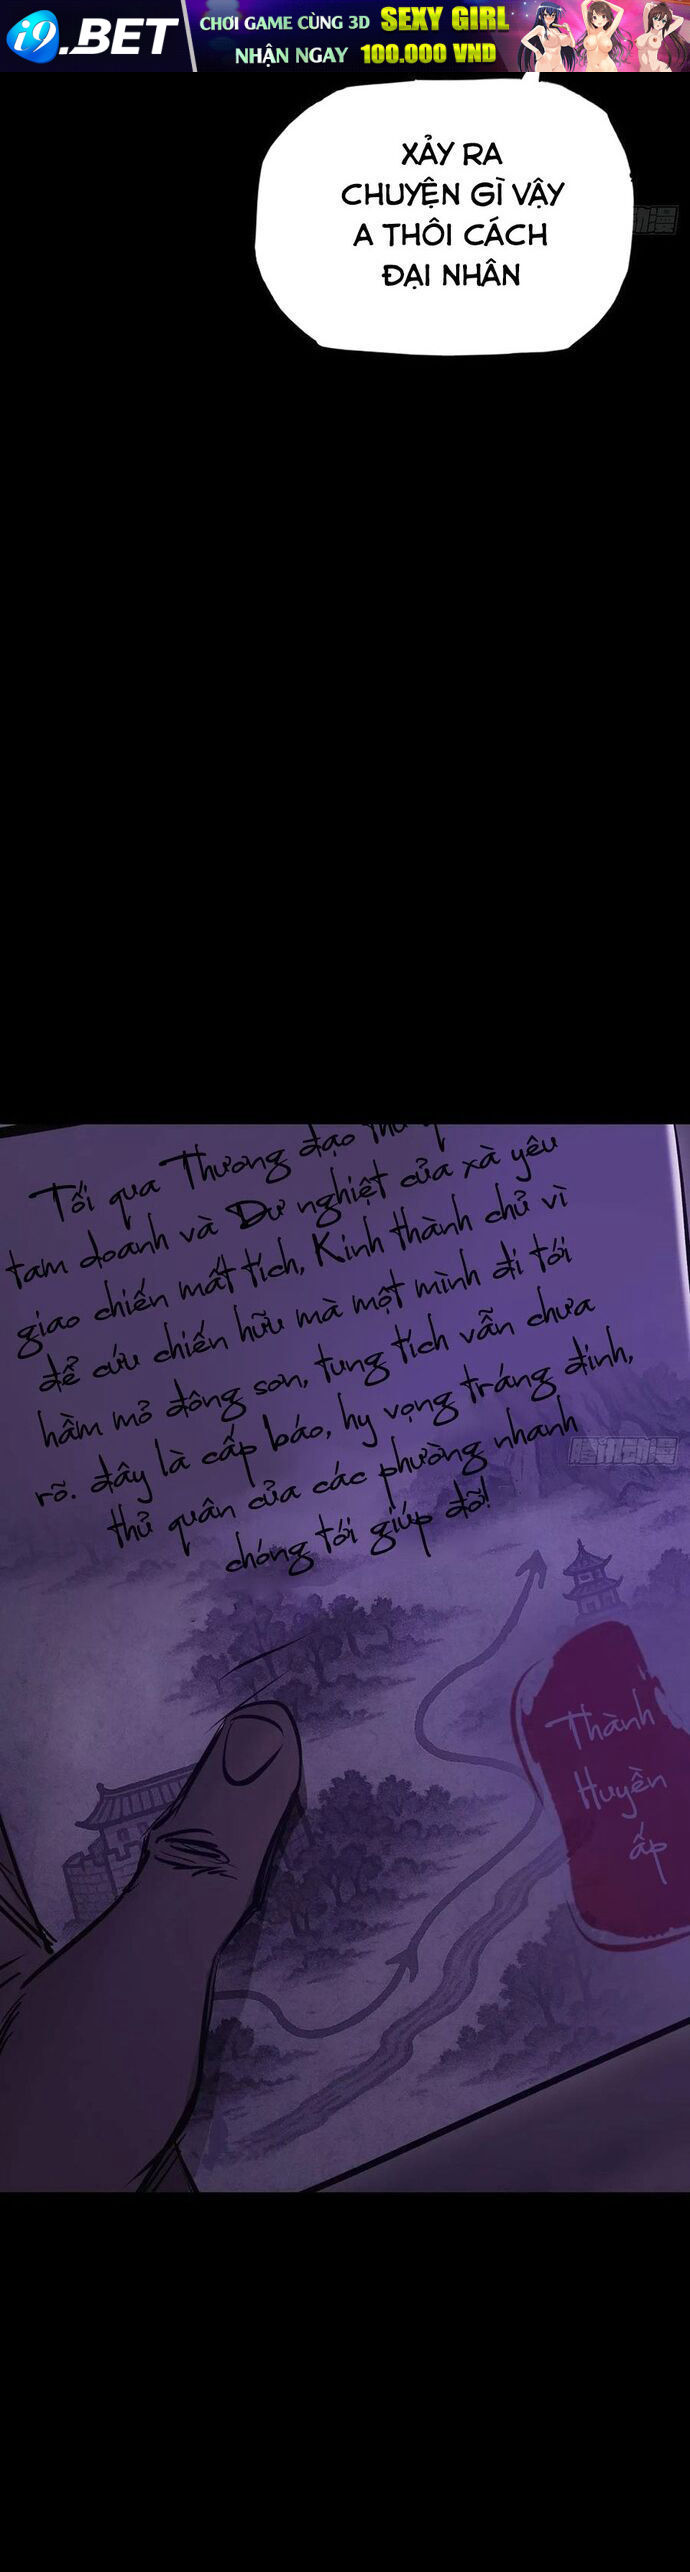 i9.BET
CHƠI GAME CÙNG 3D SEXY GIRL
NHẬN NGAY 100.000 VND
XẢY RA
CHUYỆN GÌ VẬY
A THÔI CÁCH
ĐẠI NHÂN
Tối qua Thương đạo
tam doanh và Dư nghiệt của xà yêu
giao chiến mất tích, Kinh thành chủ vì
để cứu chiến hữu mà một mình đi tới
hầm mỏ đông sơn, tung tích vẫn chưa
rõ. đây là cấp báo, hy vọng tráng đinh,
thủ quân của các phường nhanh
chóng tới giúp đỡ!
腾讯动漫
Thành
Huyền
ấp